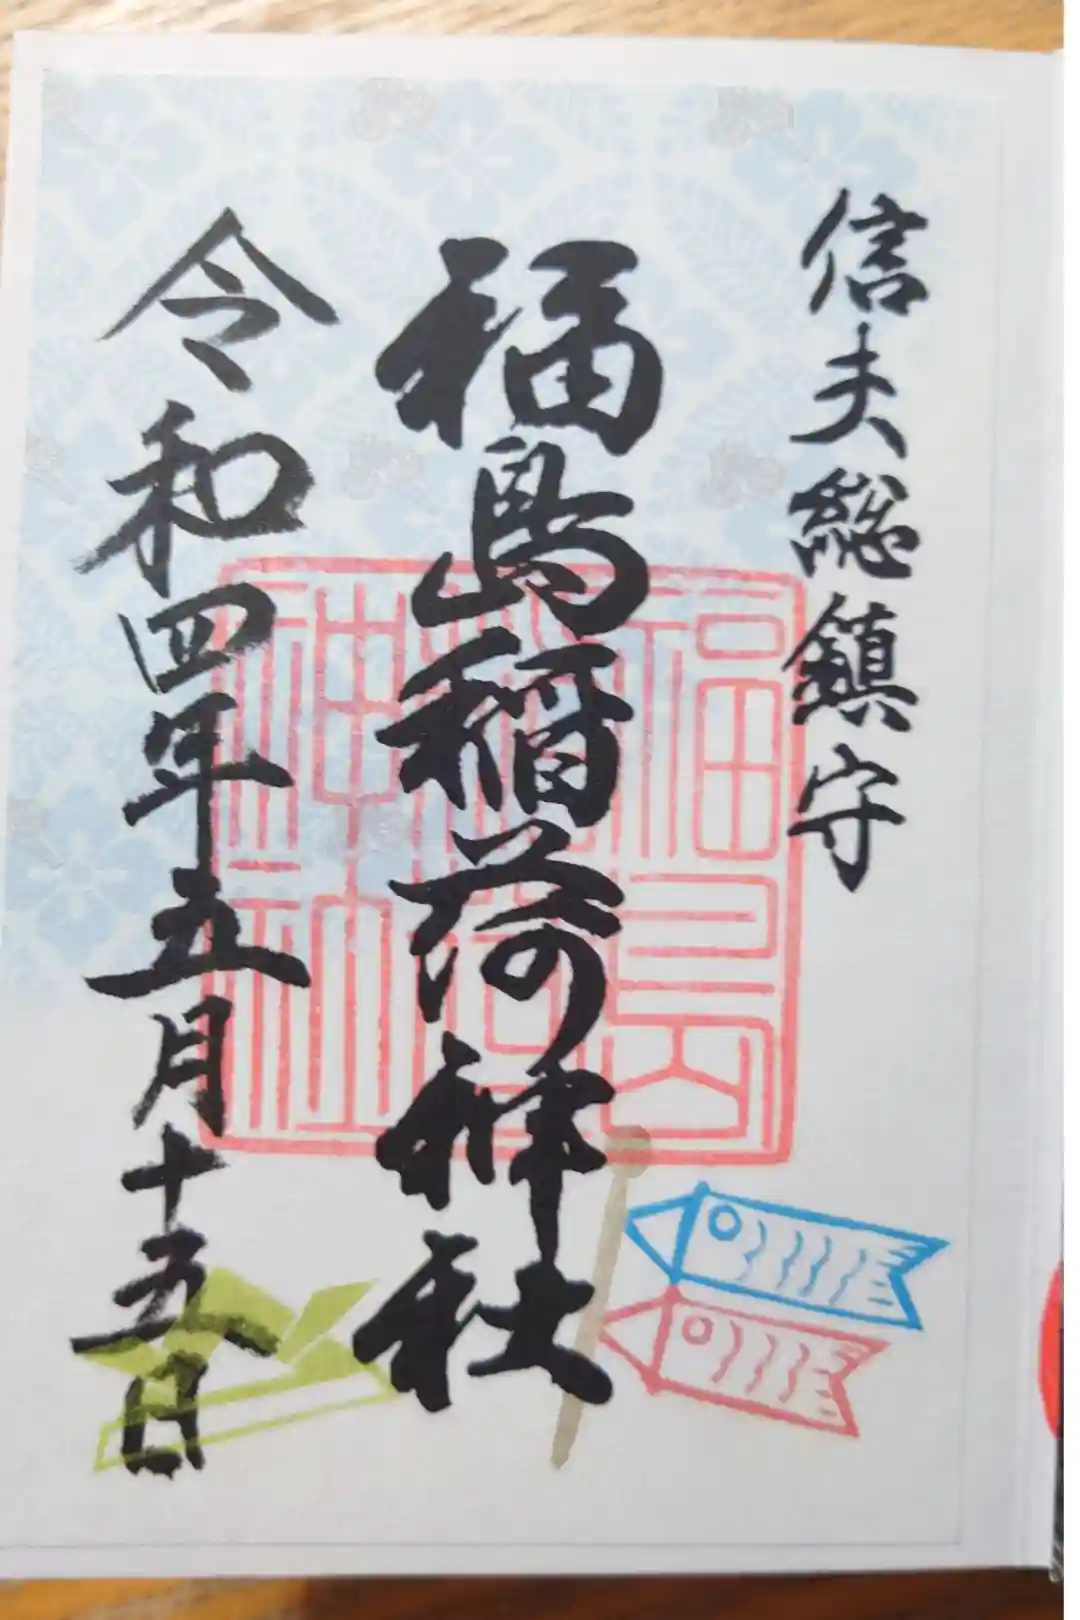 信夫総鎮守
福島稲荷神社
令和四年五月十五日
福島
神社